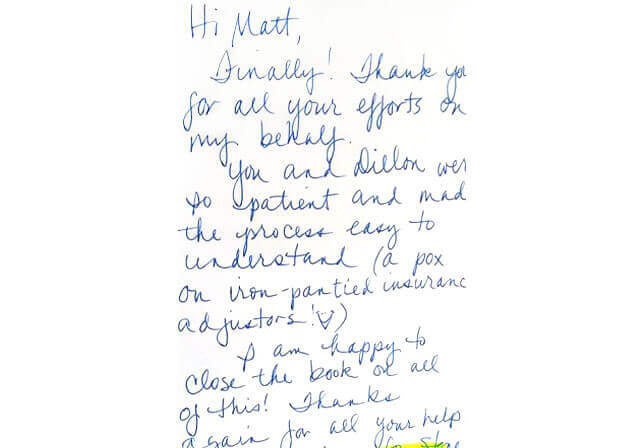 Hi Matt,
Finally! Thank you
for all your efforts on
my behalf.
You and Dillon wer
so patient and mad
the process easy to
understand (a pox
on iron-pantied insuranc
adjustors!)
I am happy to
close the book on all
of this! Thanks
again for all your help